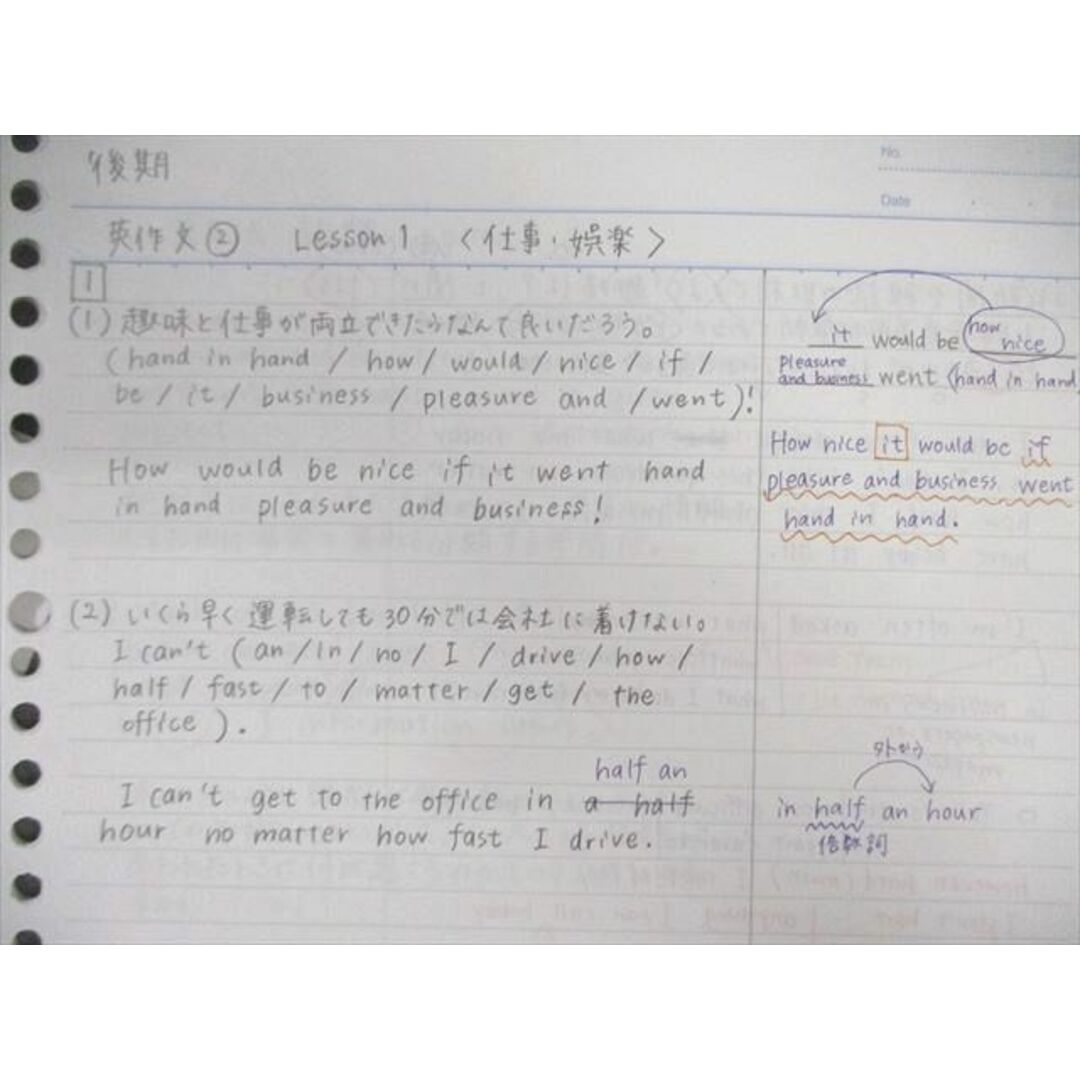 後期
No.
Date
英作文② Lesson 1 〈仕事・娯楽〉
1
(1) 趣味と仕事が両立できたらなんて良いだろう。
(hand in hand / how / would / nice / if /
be / it / business / pleasure and / went)!
How would be nice if it went hand
in hand pleasure and business!
it would be how nice
pleasure and business went (hand in hand
How nice it would be if
pleasure and business went
hand in hand.
(2) いくら早く運転しても30分では会社に着けない。
I can't (an / in / no / I / drive / how /
half / fast / to / matter / get / the
office ).
half an
I can't get to the office in a half
hour no matter how fast I drive.
in half an hour
倍数詞